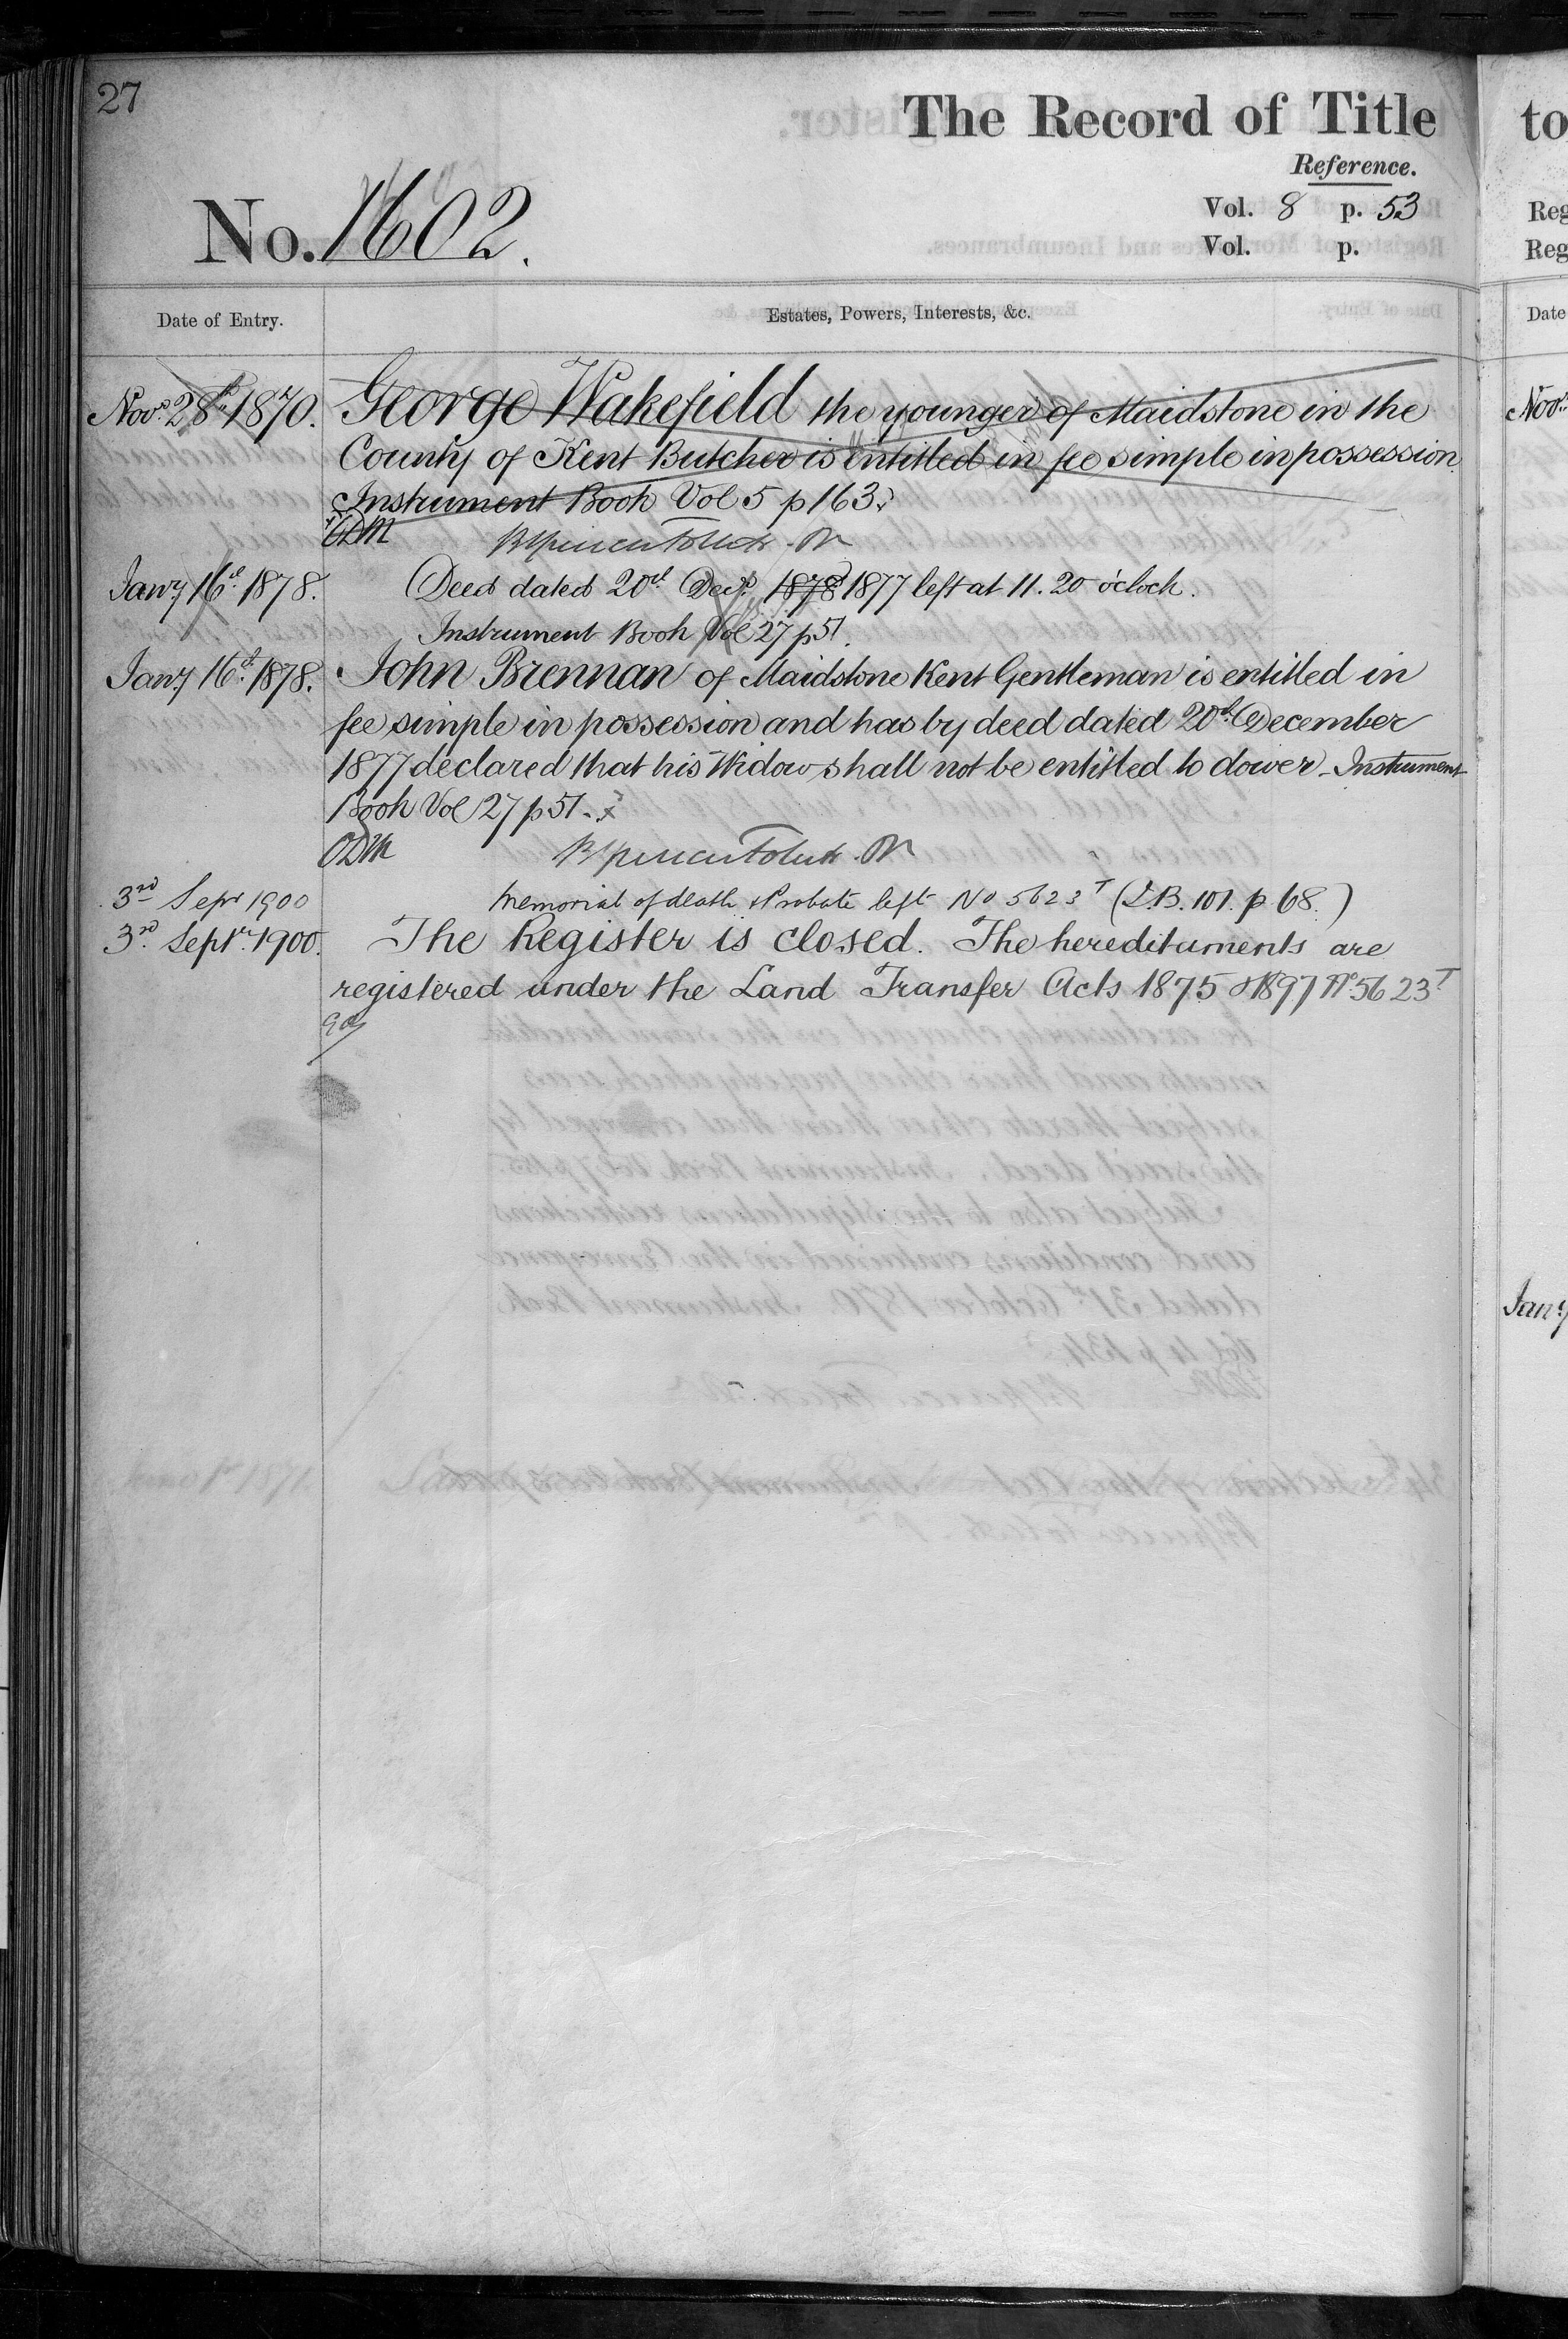 27
The Record of Title
to
Reference.
Vol. 8 p. 53
Reg
No. 1602.
Vol. p.
Reg
Date of Entry.
Estates, Powers, Interests, &c.
Date
Novr. 28th 1870. George Wakefield the younger of Maidstone in the
Novr.
County of Kent Butcher is entitled in fee simple in possession
Instrument Book Vol 5 p 163.
ODM
Jany 16th 1878. Deed dated 20th Decr. 1878 1877 left at 11.20 o'clock.
Instrument Book Vol 27 p 51.
Jany 16th 1878. John Brennan of Maidstone Kent Gentleman is entitled in
fee simple in possession and has by deed dated 20th December
1877 declared that his Widow shall not be entitled to dower - Instrument
Book Vol 27 p 51.
ODM
3rd Sepr 1900 Memorial of death & Probate left No 5623T (I.B. 101. p 68.)
3rd Septr. 1900. The Register is closed. The hereditaments are
registered under the Land Transfer Acts 1875 & 1897 No. 5623T
Jany